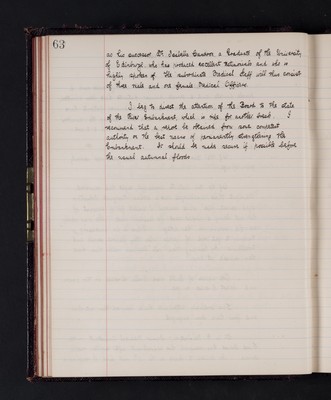 63
as his successor Dr. Barbour, a Graduate of the University
of Edinburgh, who has produced excellent testimonials and who is
highly spoken of. The subordinate Medical Staff will thus consist
of three male and one female Medical Officers.
I beg to direct the attention of the Board to the state
of the River Embankment, which is ripe for another breach. I
recommend that a report be obtained from some competent
authority on the best means of permanently strengthening the
Embankment. It should be made secure if possible before
the usual autumnal floods